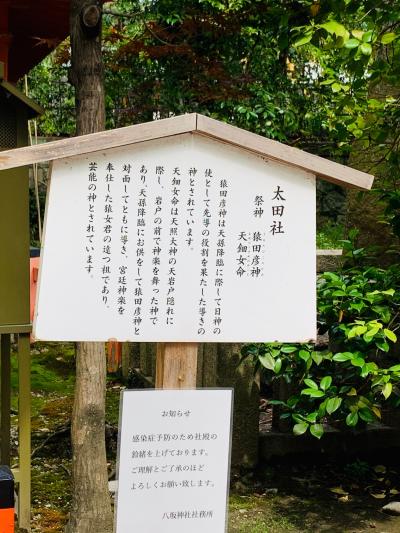 太田社
祭神 猿田彦神
天鈿女命
猿田彦神は天孫降臨に際して日神の
使として先導の役割を果たした導きの
神とされています。
天鈿女命は天照大神の天岩戸隠れに
際し、岩戸の前で神楽を舞った神で
あり、天孫降臨にお供をして猿田彦神と
対面してともに導き、宮廷神楽を
奉仕した猿女君の遠つ祖であり、
芸能の神とされています。
お知らせ
感染症予防のため社殿の
鈴緒を上げております。
ご理解とご了承のほど
よろしくお願い致します。
八坂神社社務所